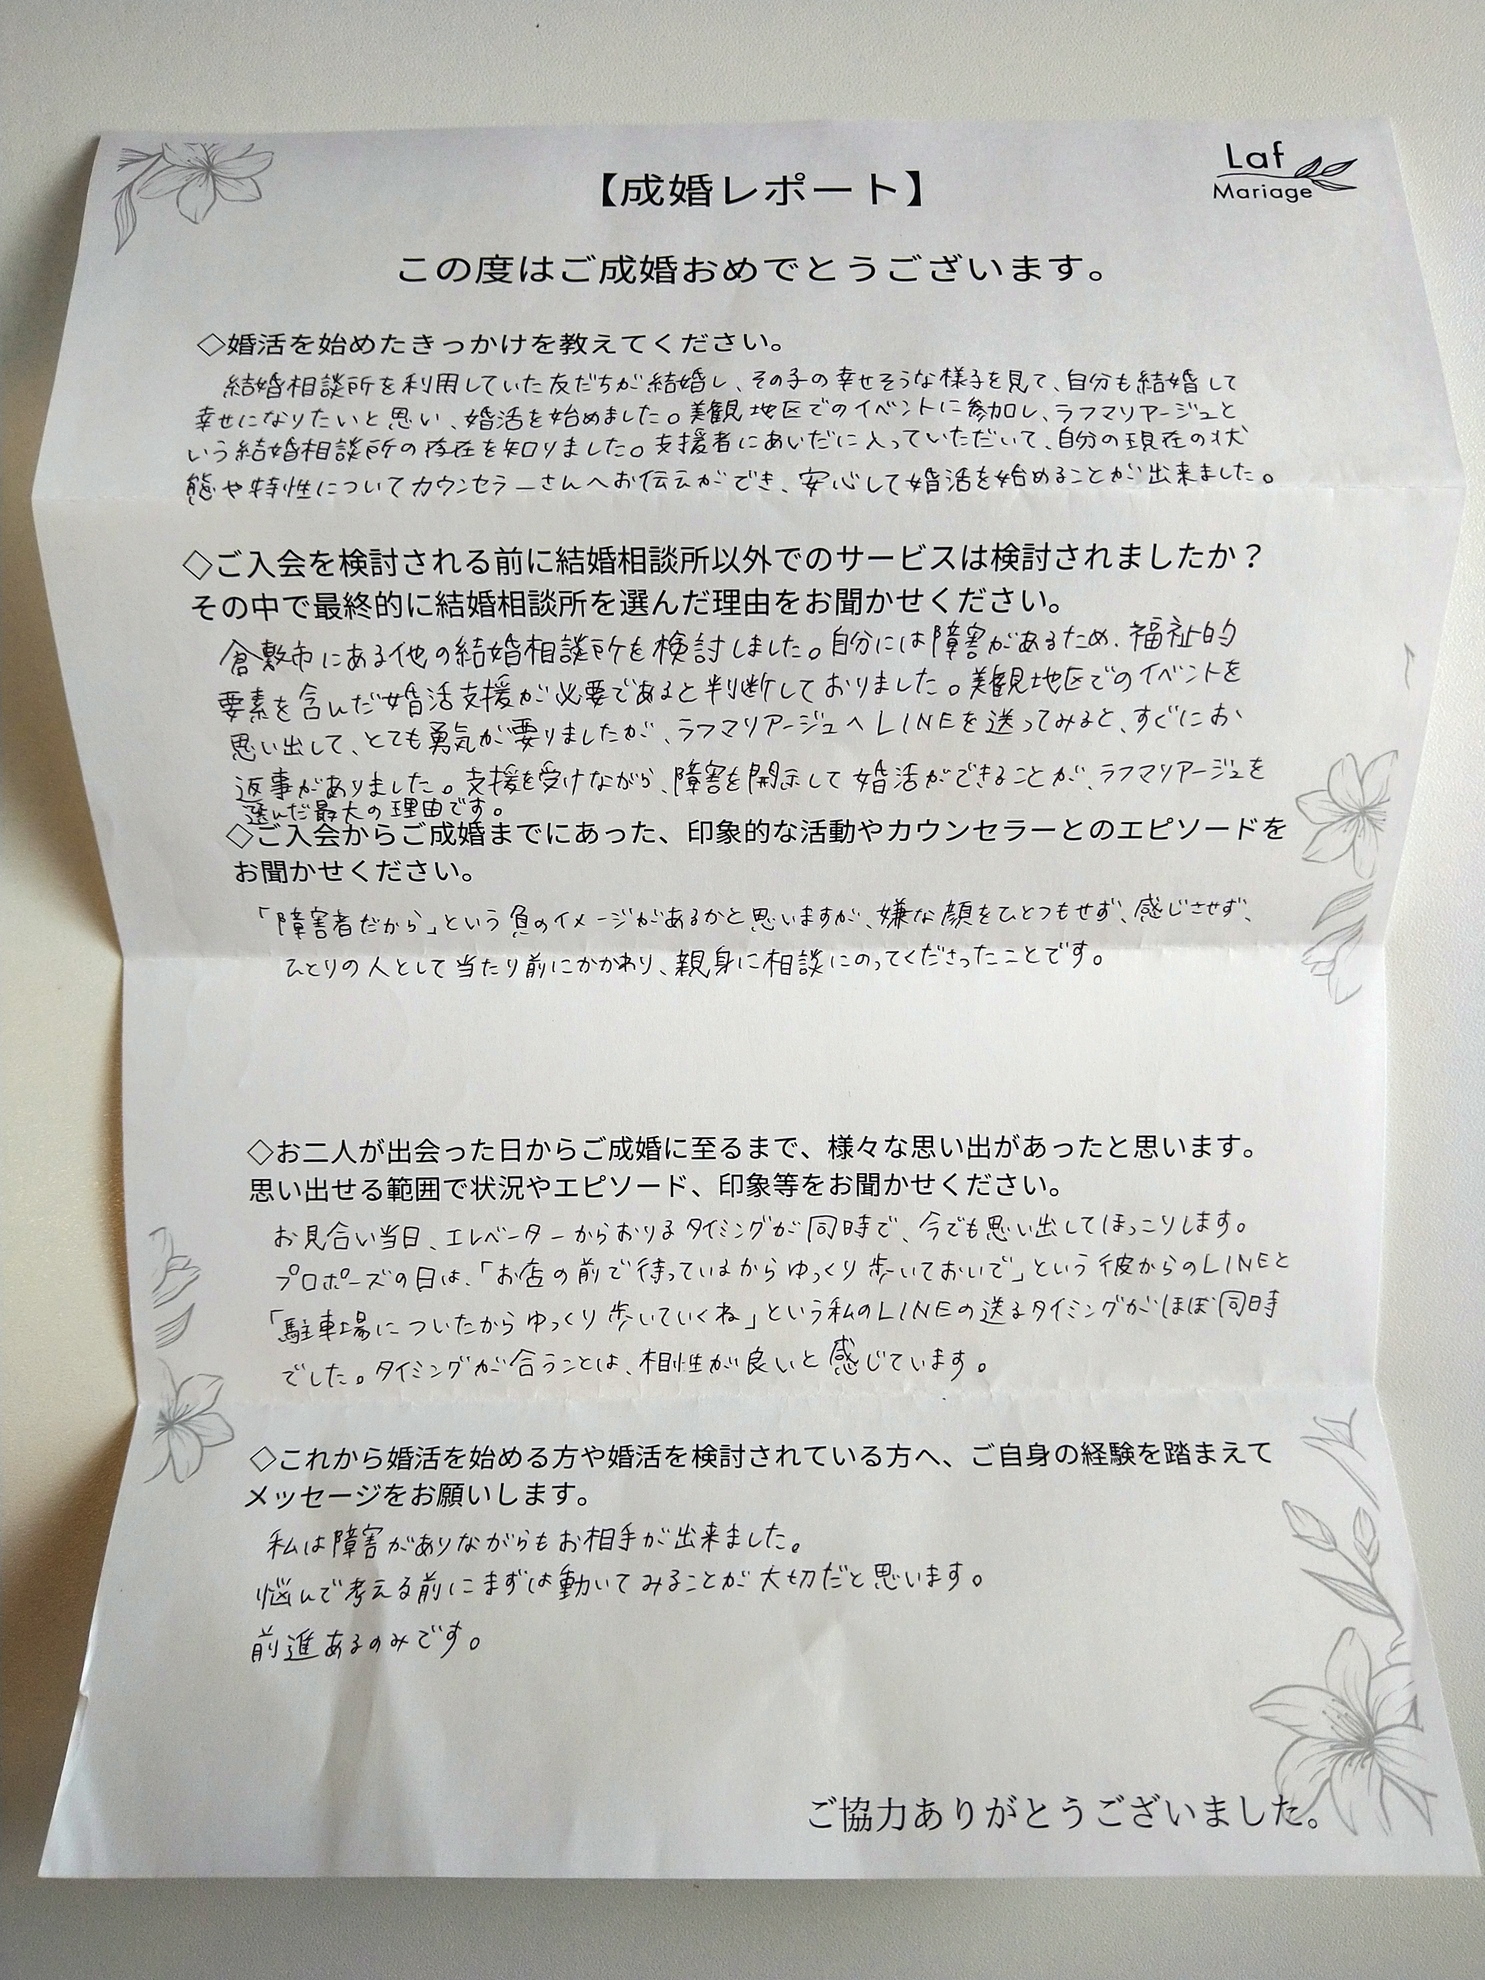 Laf
Mariage
【成婚レポート】
この度はご成婚おめでとうございます。
◇婚活を始めたきっかけを教えてください。
結婚相談所を利用していた友だちが結婚し、その子の幸せそうな様子を見て、自分も結婚して
幸せになりたいと思い、婚活を始めました。美観地区でのイベントに参加し、ラフマリアージュと
いう結婚相談所の存在を知りました。支援者にあいだに入っていただいて、自分の現在の状
態や特性についてカウンセラーさんへお伝えができ、安心して婚活を始めることが出来ました。
◇ご入会を検討される前に結婚相談所以外でのサービスは検討されましたか？
その中で最終的に結婚相談所を選んだ理由をお聞かせください。
倉敷市にある他の結婚相談所を検討しました。自分には障害があるため、福祉的
要素を含んだ婚活支援が必要であると判断しておりました。美観地区でのイベントを
思い出して、とても勇気が要りましたが、ラフマリアージュへLINEを送ってみると、すぐにお
返事がありました。支援を受けながら、障害を開示して婚活ができることが、ラフマリアージュを
選んだ最大の理由です。
◇ご入会からご成婚までにあった、印象的な活動やカウンセラーとのエピソードを
お聞かせください。
「障害者だから」という負のイメージがあるかと思いますが、嫌な顔をひとつもせず、感じさせず、
ひとりの人として当たり前にかかわり、親身に相談にのってくださったことです。
◇お二人が出会った日からご成婚に至るまで、様々な思い出があったと思います。
思い出せる範囲で状況やエピソード、印象等をお聞かせください。
お見合い当日、エレベーターからおりるタイミングが同時で、今でも思い出してほっこりします。
プロポーズの日は、「お店の前で待っているからゆっくり歩いておいで」という彼からのLINEと
「駐車場についたからゆっくり歩いていくね」という私のLINEの送るタイミングがほぼ同時
でした。タイミングが合うことは、相性が良いと感じています。
◇これから婚活を始める方や婚活を検討されている方へ、ご自身の経験を踏まえて
メッセージをお願いします。
私は障害がありながらもお相手が出来ました。
悩んで考える前にまずは動いてみることが大切だと思います。
前進あるのみです。
ご協力ありがとうございました。